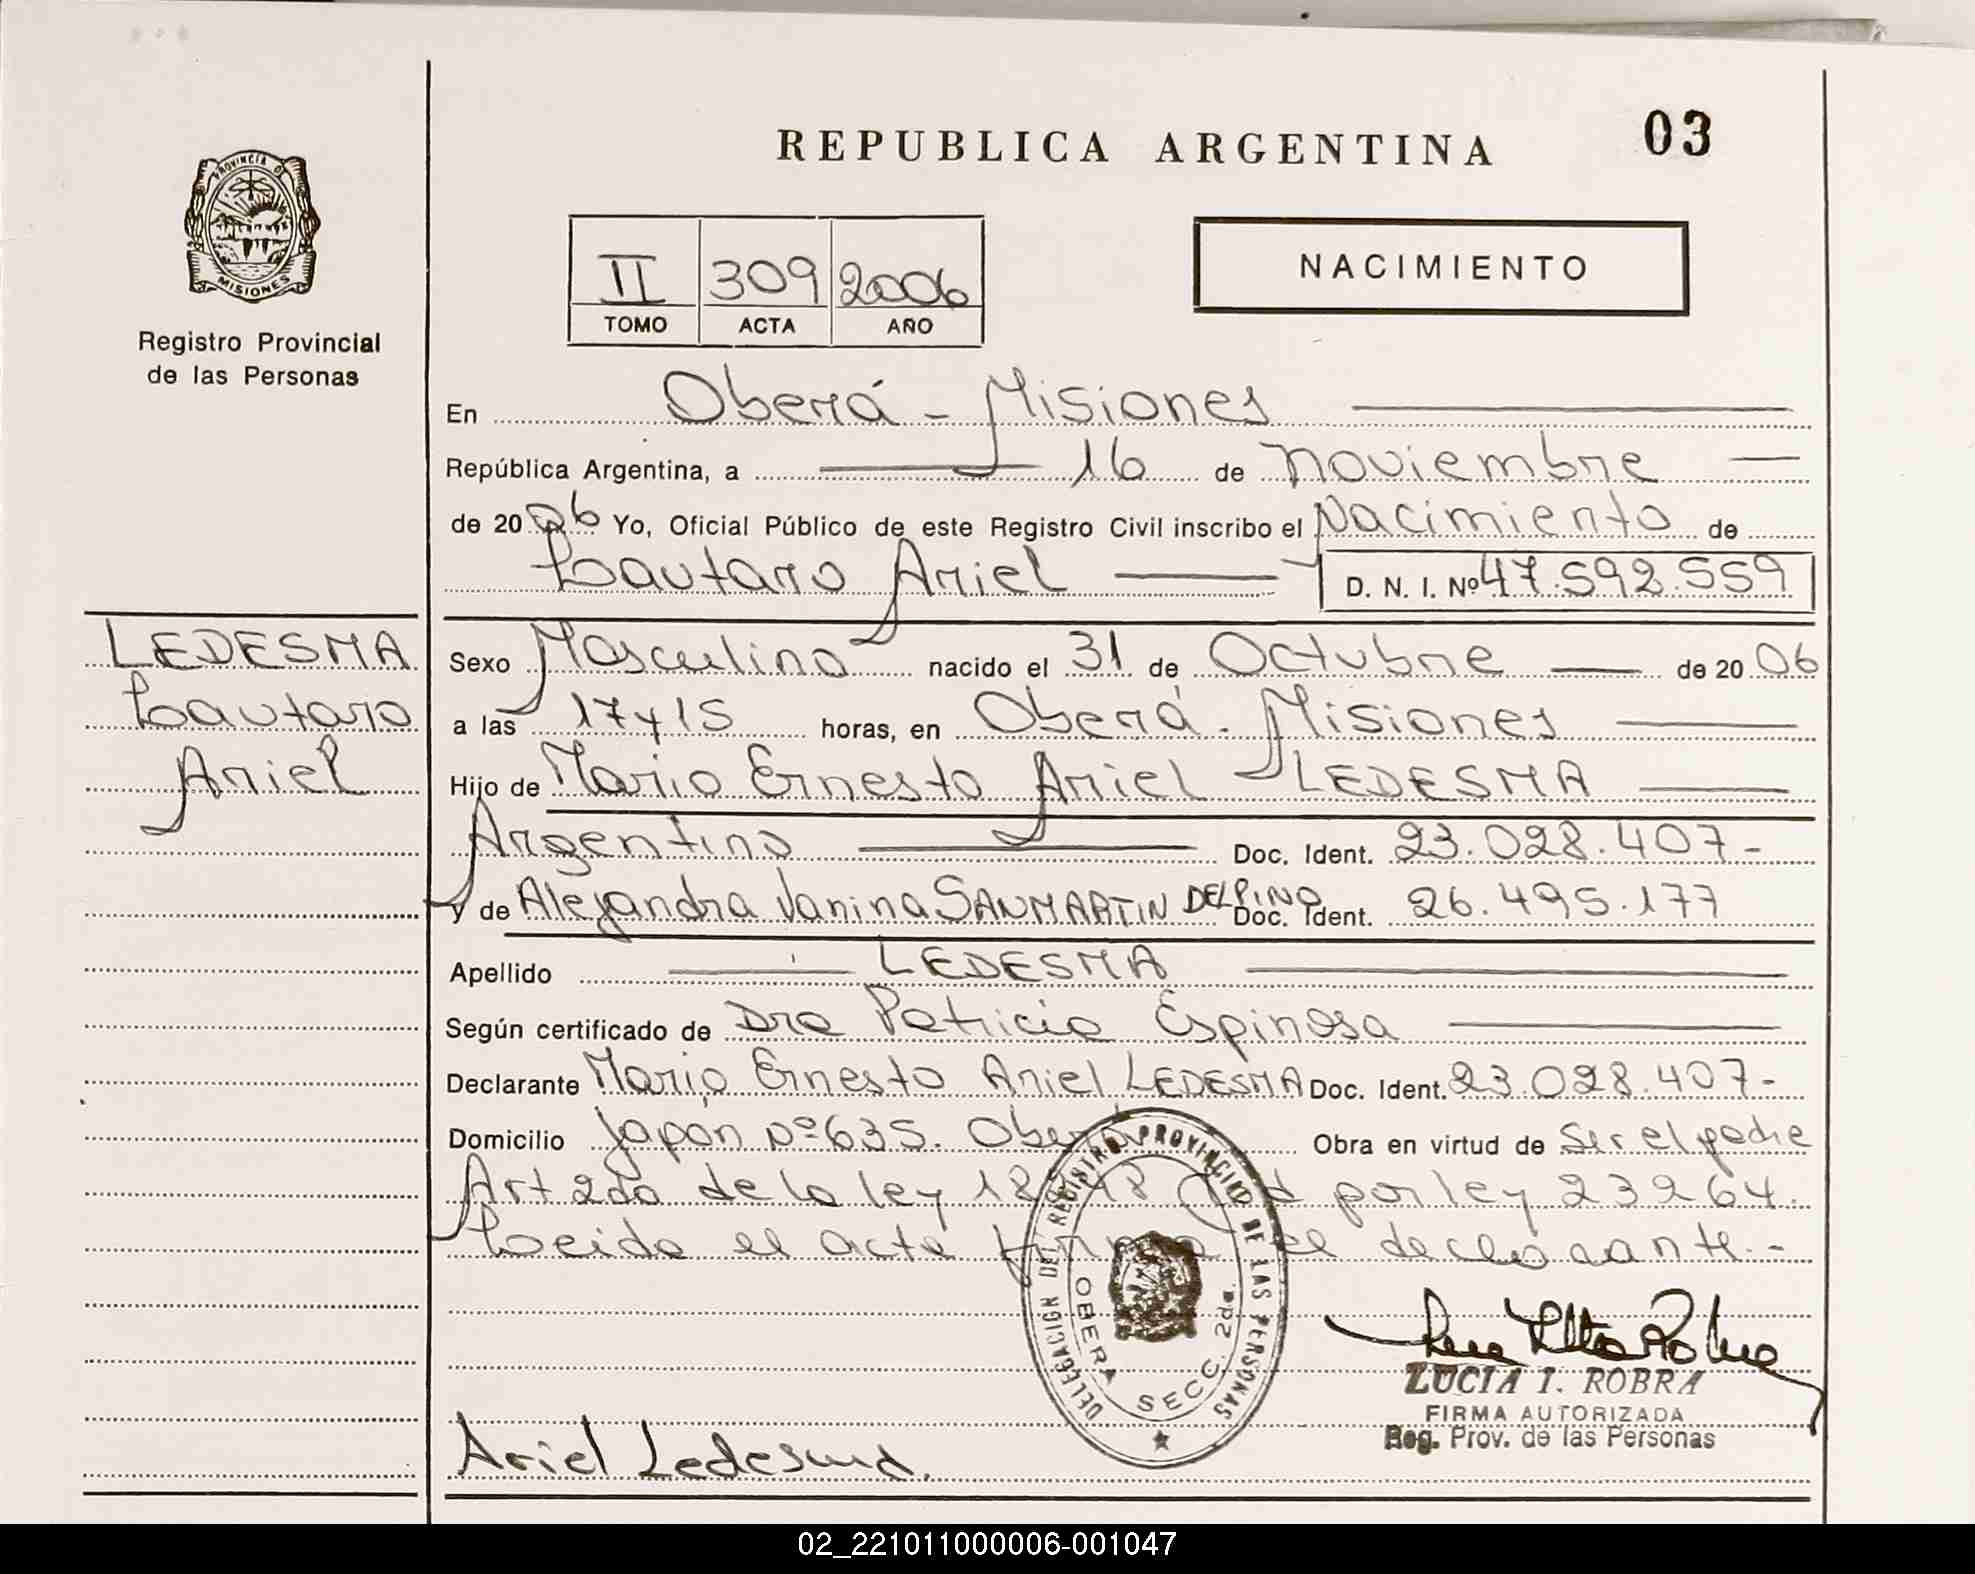 PROVINCIA D
MISIONES
Registro Provincial
de las Personas
REPUBLICA ARGENTINA
03
II 309 2006
TOMO ACTA AÑO
NACIMIENTO
En Oberá - Misiones
República Argentina, a 16 de noviembre
de 2006 Yo, Oficial Público de este Registro Civil inscribo el Nacimiento de
Lautaro Ariel D. N. I. Nº 47.592.559
LEDESMA
Lautaro
Ariel
Sexo Masculino nacido el 31 de Octubre de 2006
a las 17y15 horas, en Oberá - Misiones
Hijo de Mario Ernesto Ariel LEDESMA
Argentino Doc. Ident. 23.028.407-
y de Alejandra Vanina SANMARTIN DELPINO Doc. Ident. 26.495.177
Apellido LEDESMA
Según certificado de Dra Patricia Espinosa
Declarante Mario Ernesto Ariel LEDESMA Doc. Ident. 23.028.407-
Domicilio Japón Nº 635. Oberá Obra en virtud de ser el padre
Art 2do de la ley 18 48 por ley 23264.
Leida el acta firma el declarante.-
DELEGACION DEL REGISTRO PROVINCIAL DE LAS PERSONAS
OBERA SECC. 2da.
LUCIA I. ROBRA
FIRMA AUTORIZADA
Reg. Prov. de las Personas
Ariel Ledesma.
02_221011000006-001047